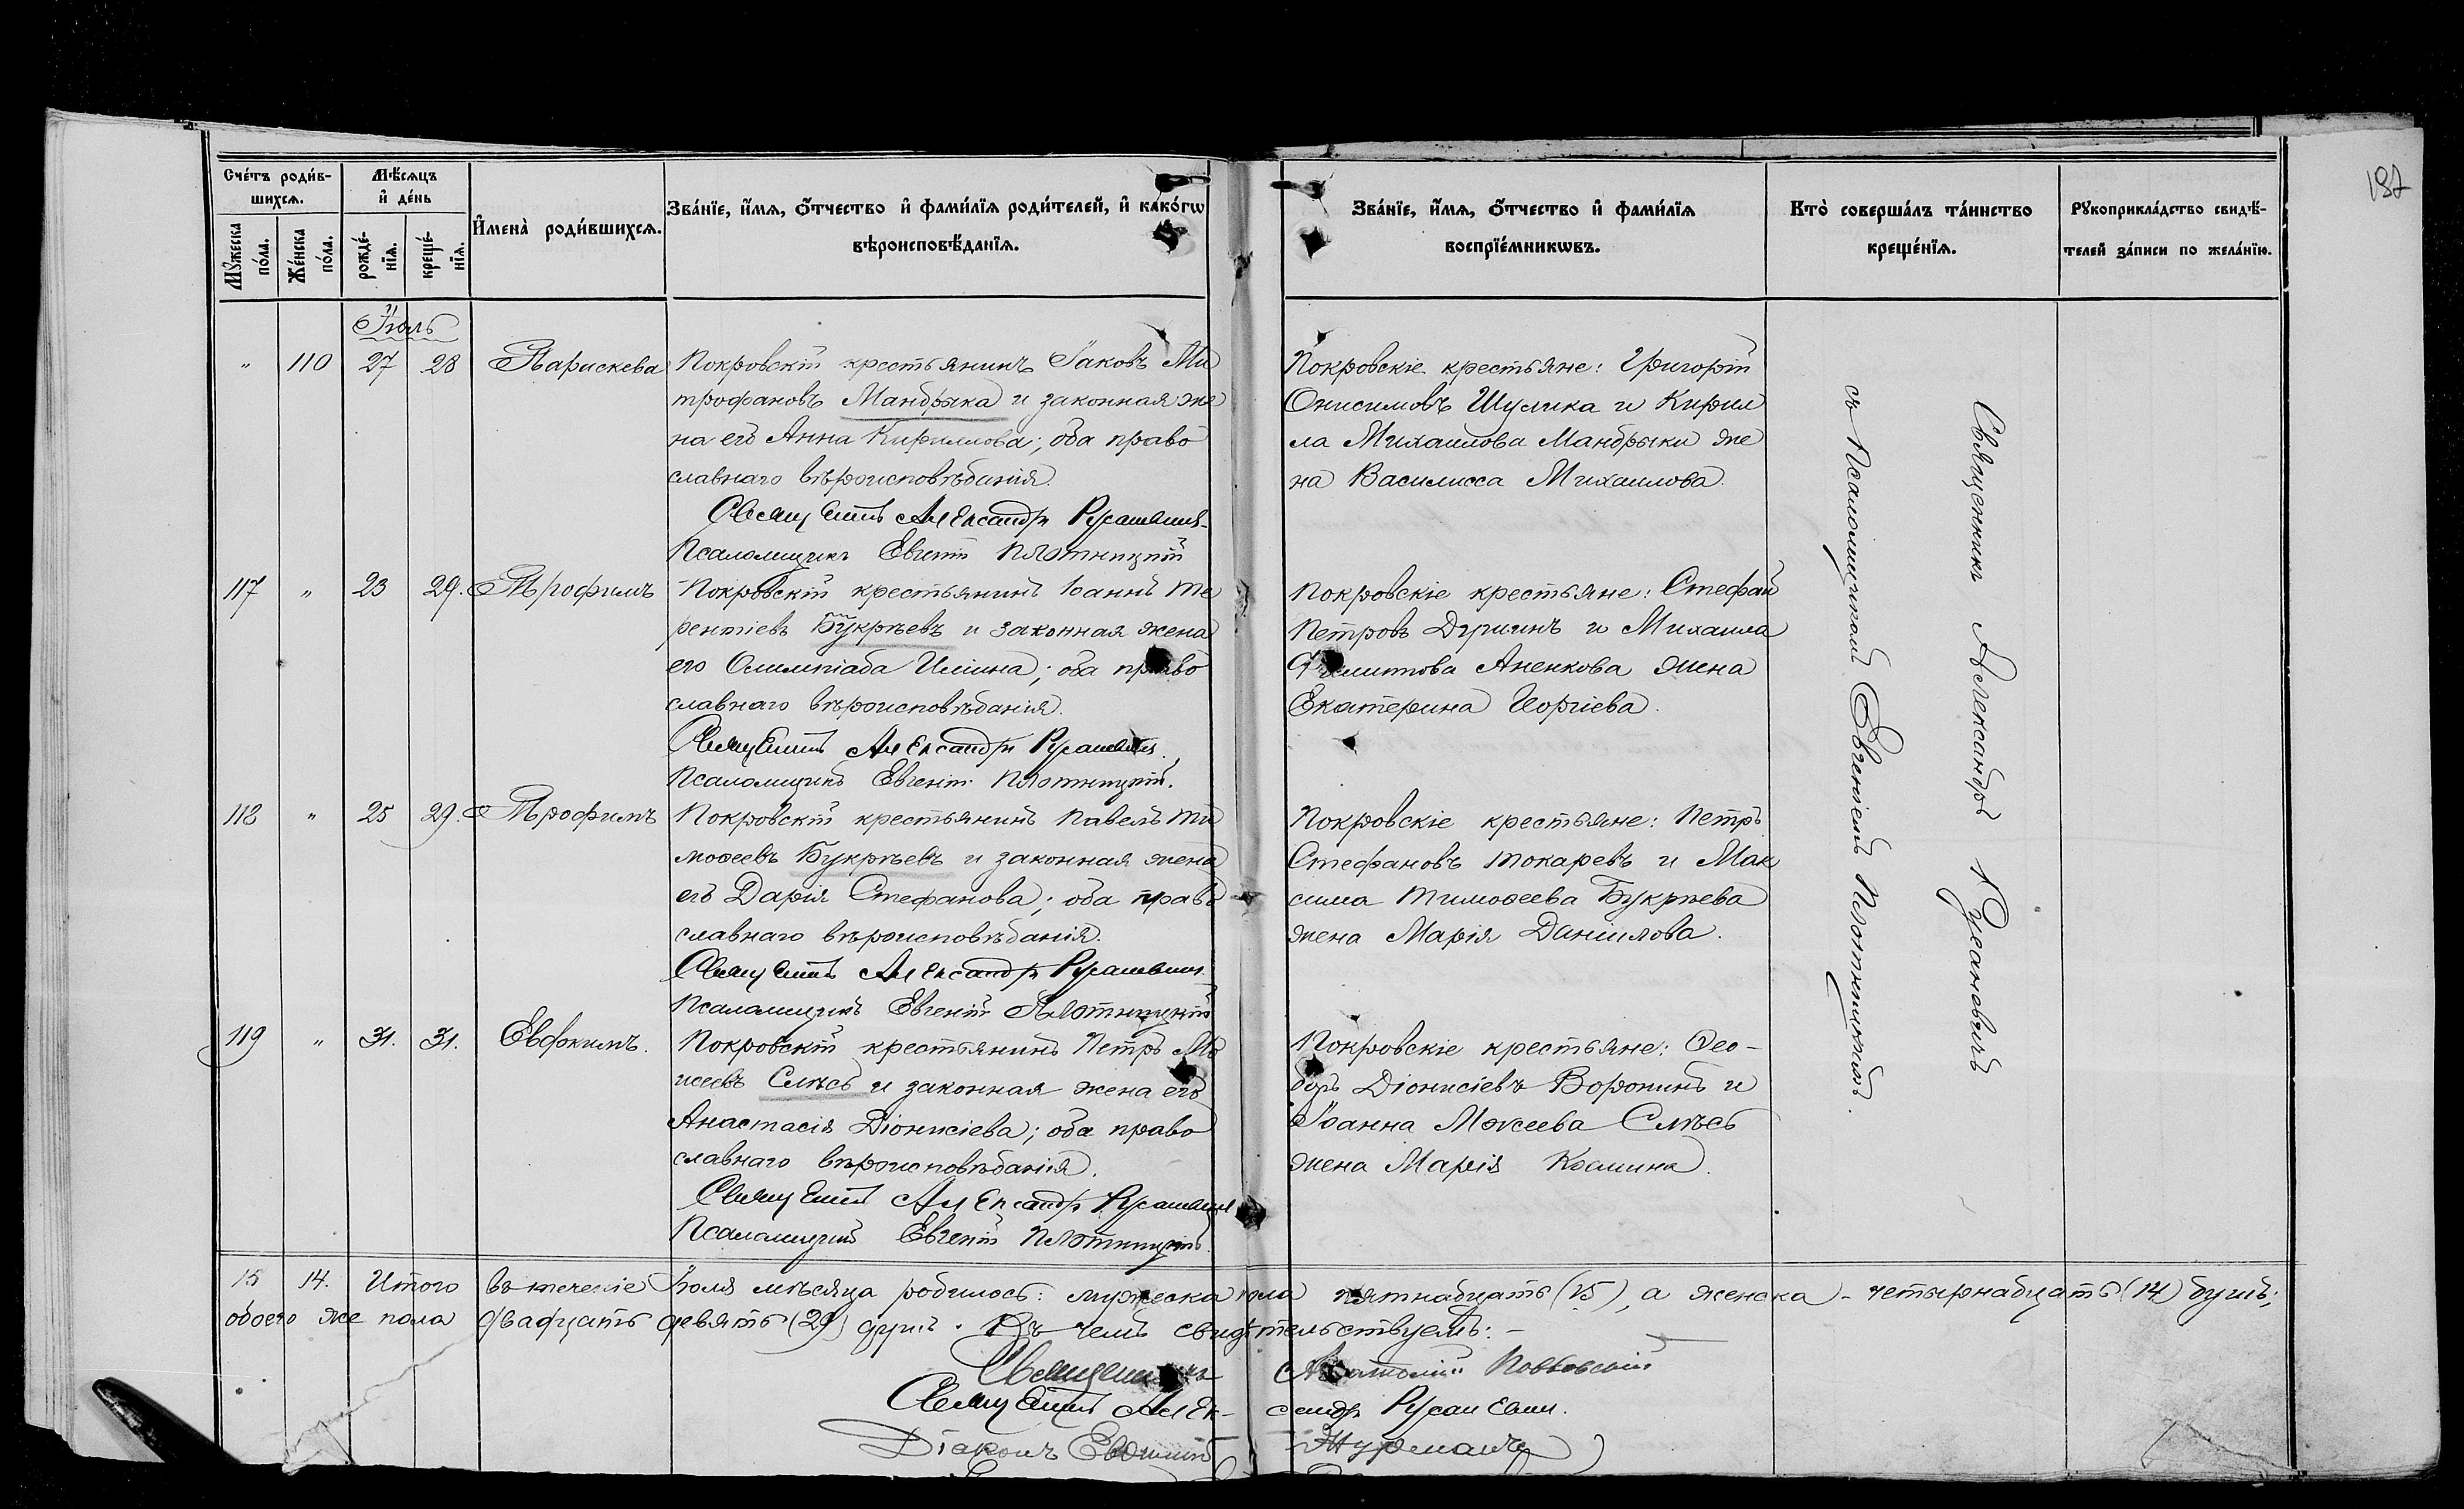 187
Счéтъ роди́в-
шихся.
Мѣсяцъ
и҆ дéнь
И҆менà роди́вшихся.
Звáнїе, и҆́мя, ѻ҆́тчество и҆ фами́лїя роди́телей, и҆ какóгѡ
вѣроисповѣ́данїя.
Звáнїе, и҆́мя, ѻ҆́тчество и҆ фами́лїя
воспрїéмникѡвъ.
Ктò совершáлъ тáинство
крещéнїя.
Рꙋкоприклáдство свидѣ́-
телей зáписи по желáнїю.
Мꙋ́жеска
пóла.
Жéнска
пóла.
рождé-
нїя.
крещé-
нїя.
Іюль
" 110 27 28 Парискева Покровскій крестьянинъ Іаковъ Ми
трофановъ Мандрыка и законная же
на его Анна Кириллова; оба право
славнаго вѣроисповѣданія.
Священникъ Александръ Русановичъ
Псаломщикъ Евгеній Плотницкій
Покровскіе крестьяне: Григорій
Онисимовъ Шулика и Кирил
ла Михаилова Мандрыки же
на Василисса Михаилова.
117 " 23 29. Трофимъ Покровскій крестьянинъ Іоаннъ Те
рентіевъ Букрѣевъ и законная жена
его Олимпіада Иліина; оба право
славнаго вѣроисповѣданія.
Священникъ Александръ Русановичъ.
Псаломщикъ Евгеній Плотницкій.
Покровскіе крестьяне: Стефан
Петровъ и Михаила
Аненкова жена
Екатерина Георгіева.
118 " 25 29. Трофимъ Покровскій крестьянинъ Павелъ Ти
моѳеевъ Букрѣевъ и законная жена
его Дарія Стефанова; оба право
славнаго вѣроисповѣданія.
Священникъ Александръ Русановичъ.
Псаломщикъ Евгеній Плотницкій
Покровскіе крестьяне: Петръ
Стефановъ Токаревъ и Мак
сима Тимоѳеева Букрѣева
жена Марія Даніилова.
119 " 31. 31. Евфокимъ. Покровскій крестьянинъ Петръ Мо
исеевъ Смѣсъ и законная жена его
Анастасія Діонисіева; оба право
славнаго вѣроисповѣданія.
Священникъ Александръ Русановичъ
Псаломщикъ Евгеній Плотницкій.
Покровскіе крестьяне: Ѳео-
доръ Діонисіевъ Воронинъ и
Іоанна Моисеева Смѣсъ
жена Марія Космина.
Священникъ Александръ Русановичъ
съ Псаломщикомъ Евгеніемъ Плотницкимъ.
15 14. Итого въ теченіе Іюля мѣсяца родилось: мужеска пола пятнадцать (15), а женска - четырнадцать (14) душъ;
обоего же пола двадцать девять (29) душъ. Въ чемъ свидѣтельствуемъ:-
Священникъ
Священникъ Александръ Русанович.
Діаконъ Евѳимій